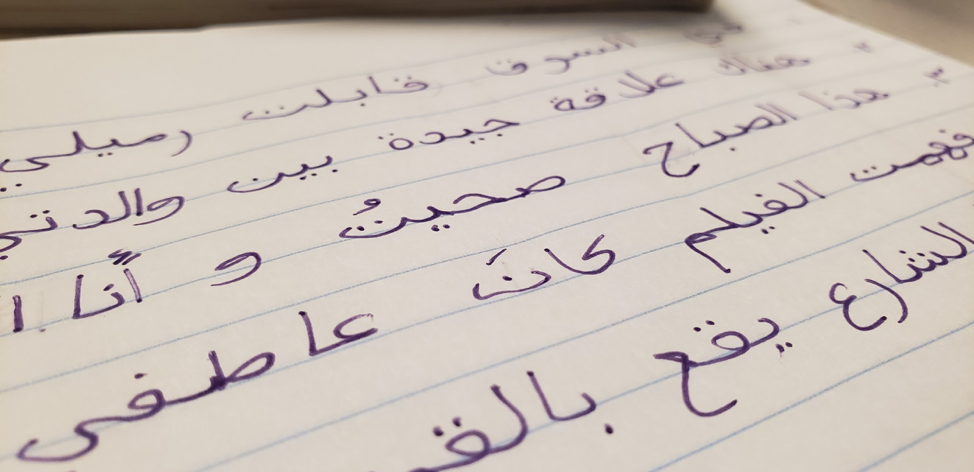 في السوق قابلت زميلي
٢ هناك علاقة جيدة بين والدتي
٣ هذا الصباح صحيتُ و أنا
فهمت الفيلم كانَ عاطفي
الشارع يقع